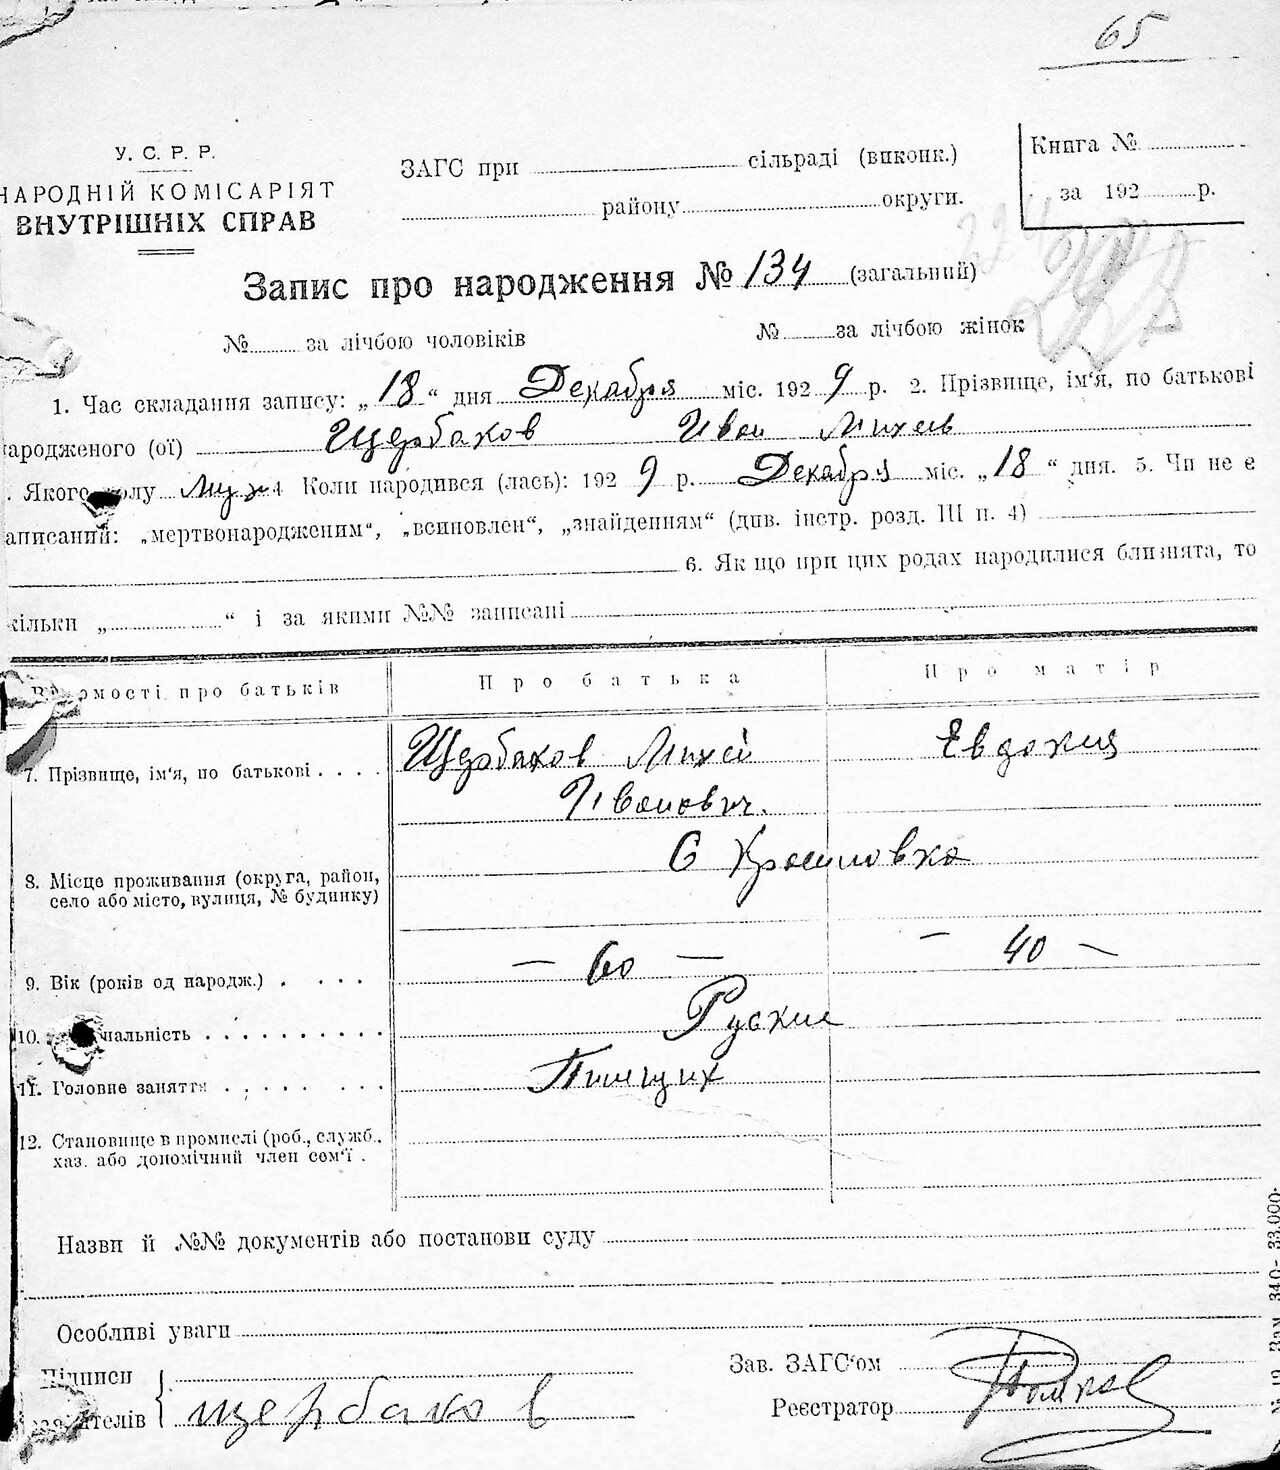 65
У. С. Р. Р.
НАРОДНІЙ КОМІСАРІЯТ
ВНУТРІШНІХ СПРАВ
ЗАГС при сільраді (виконк.)
району округи.
Книга №
за 192 р.
Запис про народження № 134 (загальний)
№ за лічбою чоловіків № за лічбою жінок
1. Час складання запису: „18“ дня Декабря міс. 1929 р. 2. Прізвище, ім‘я, по батькові
народженого (ої) Щербаков Иван Михеев
Якого полу муж 4 Коли народився (лась): 1929 р. Декабря міс. „18“ дня. 5. Чи не є
записаний: „мертвонародженим“, „всиновлен“, „знайденням“ (див. інстр. розд. III п. 4)
6. Як що при цих родах народилися близнята, то
кільки „ “ і за якими №№ записані
Відомості про батьків Про батька Про матір
7. Прізвище, ім‘я, по батькові . . . . Щербаков Михей Евдокия
Иванович.
8. Місце проживання (округа, район,
село або місто, вулиця, № будинку)
С
9. Вік (років од народж.) . . . . — 60 — — 40 —
10. Руские
11. Головне заняття . . . . . . .
12. Становище в промислі (роб., служб.,
хаз. або допомічний член сем‘ї .
Назви й №№ документів або постанови суду
Особливі уваги
Підписи
Щербаков
Зав. ЗАГС‘ом
Реєстратор